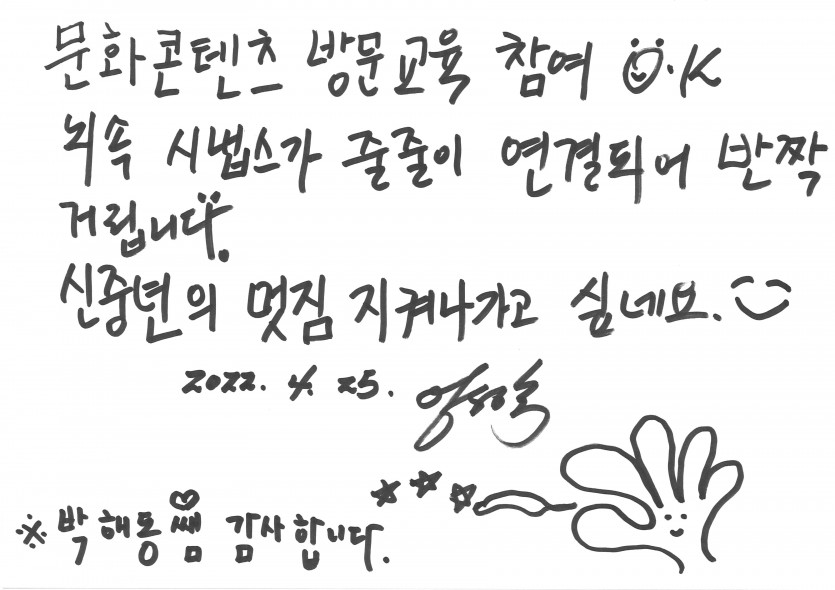 문화콘텐츠 방문교육 참여 O.K
뇌속 시냅스가 줄줄이 연결되어 반짝
거립니다.
신중년의 멋짐 지켜나가고 싶네요.
2022. 4. 25.
※ 박해동쌤 감사합니다.